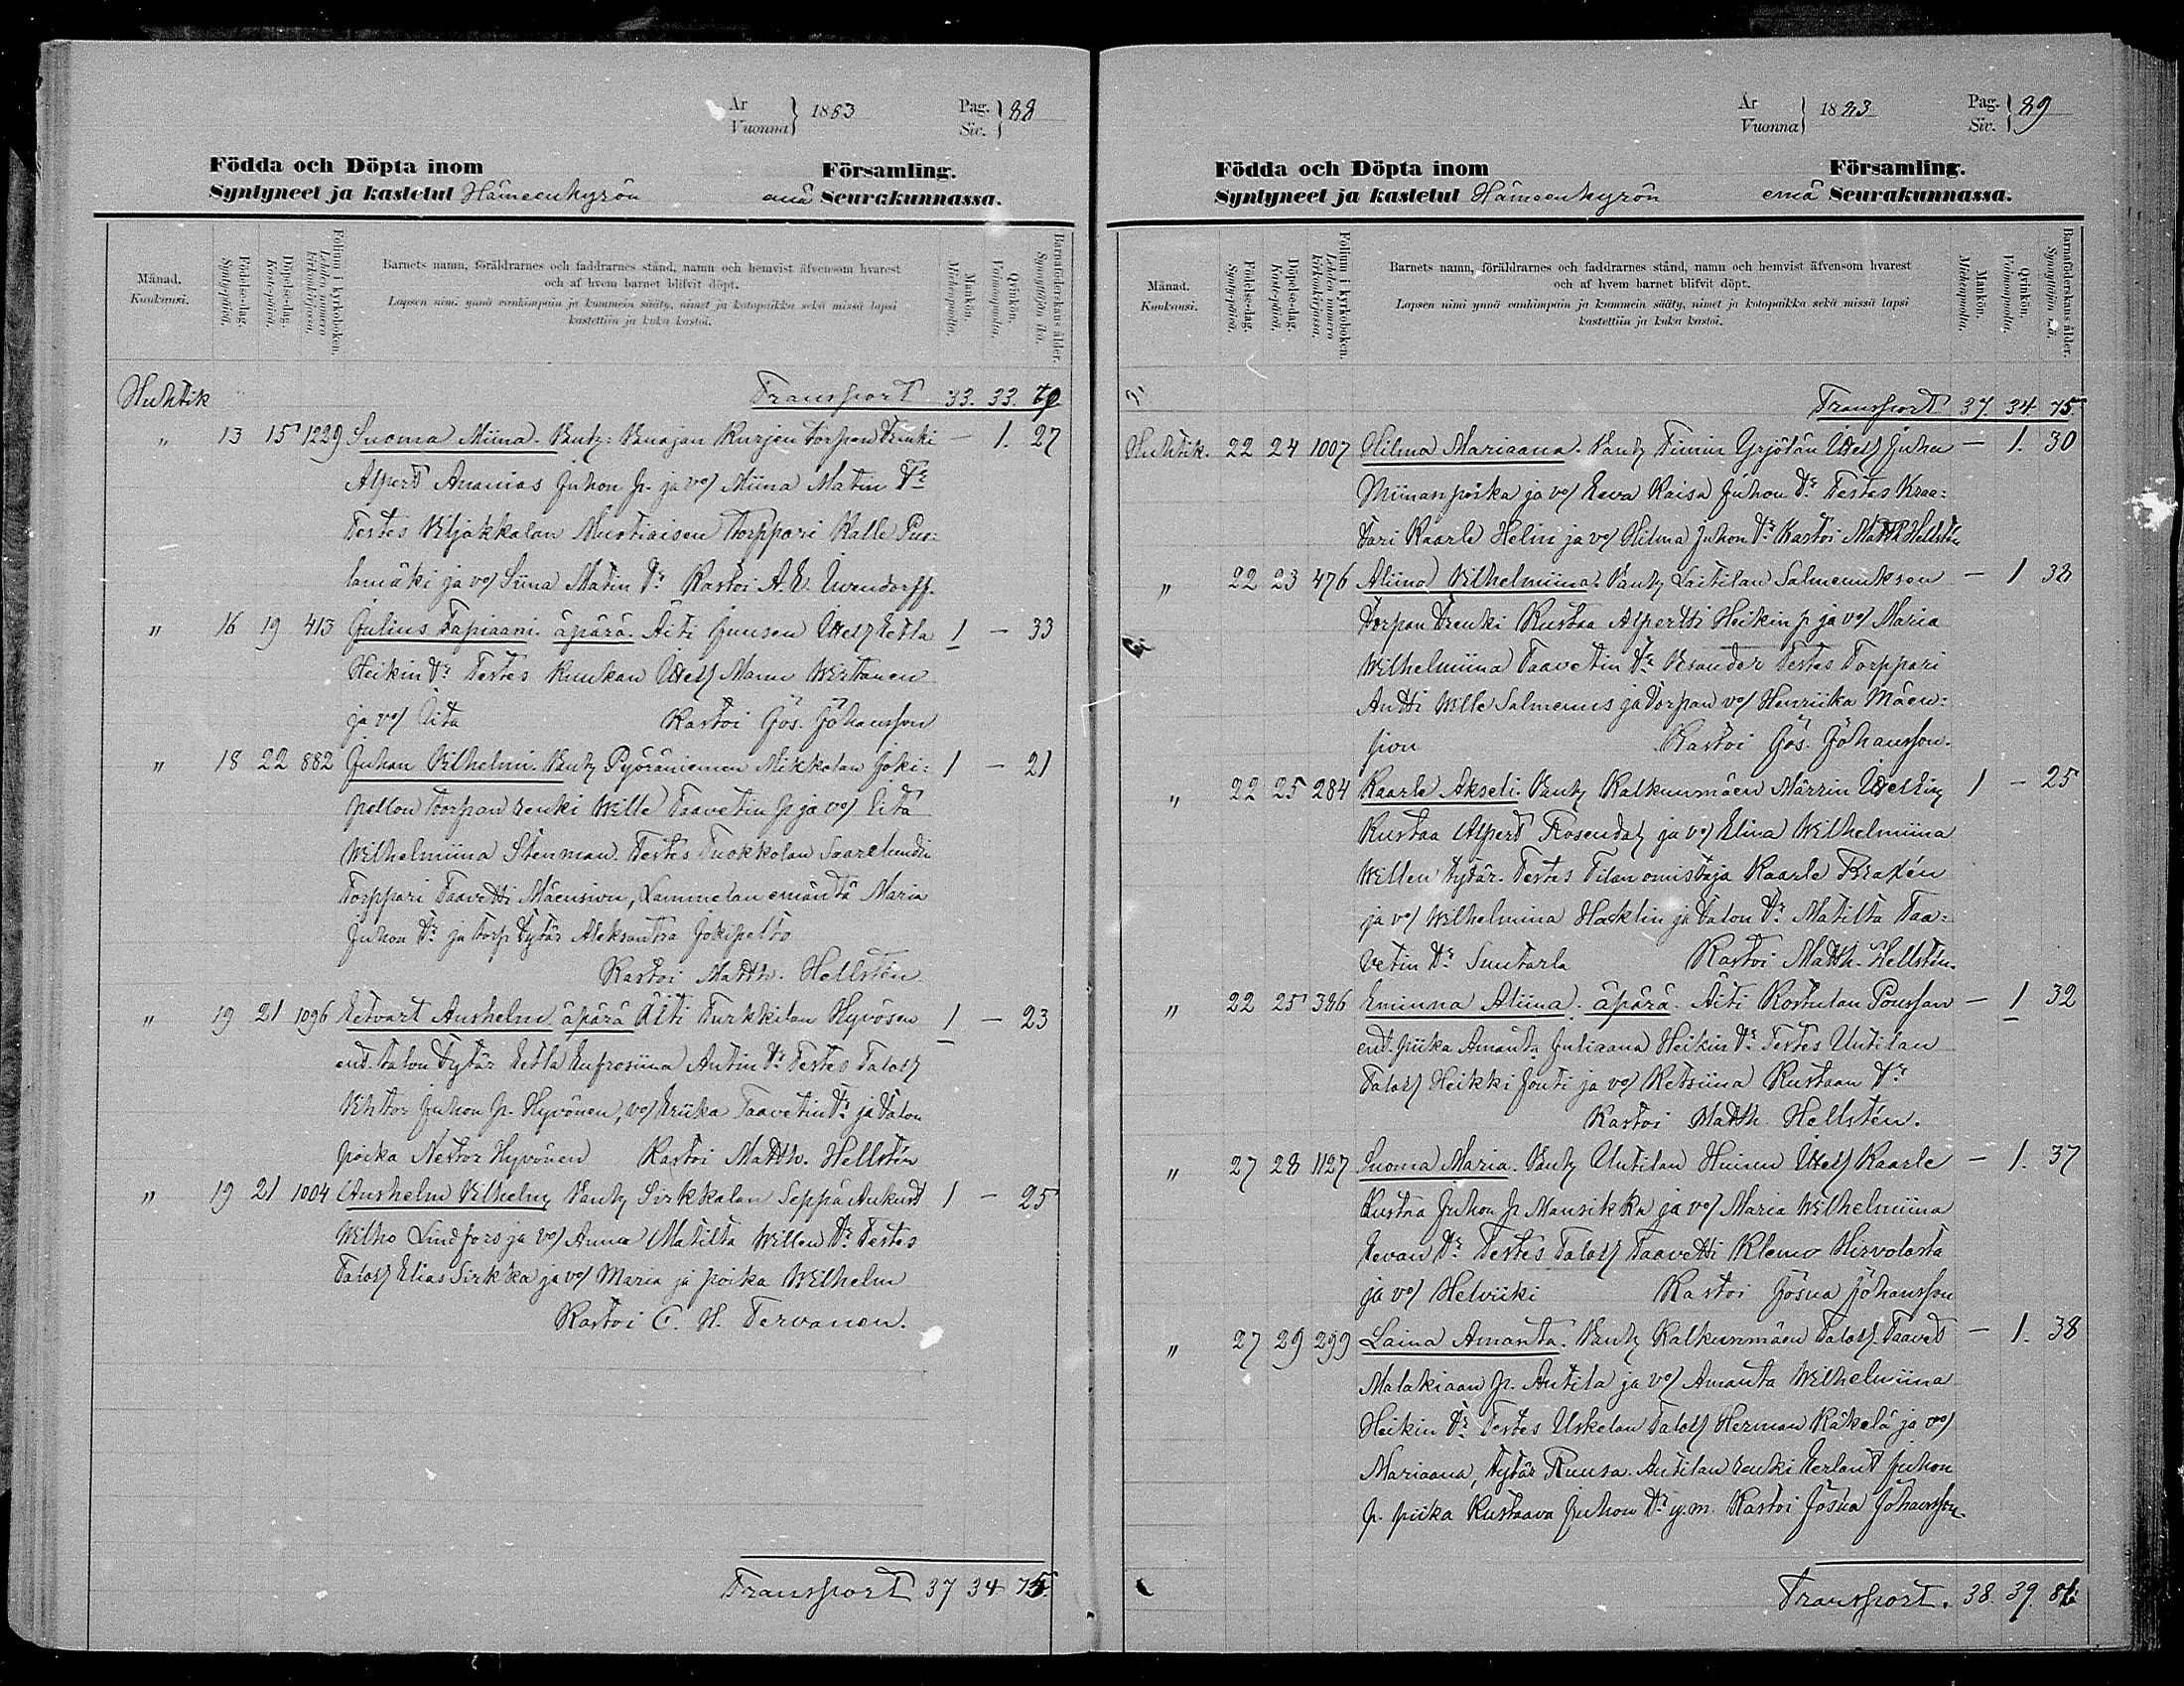 År
Vuonna } 1883
Pag.
Siv. } 88
Födda och Döpta inom Församling.
Syntyneet ja kastetut Hämeenkyrön emä Seurakunnassa.
Månad.
Kuukausi.
Födelse-dag.
Syntypäivä.
Döpelse-dag.
Kastepäivä.
Folium i kyrkoboken.
Lehden numero
kirkonkirjassa.
Barnets namn, föräldrarnes och faddrarnes stånd, namn och hemvist äfvensom hvarest
och af hvem barnet blifvit döpt.
Lapsen nimi ynnä vanhimpain ja kummein sääty, nimet ja kotopaikka sekä missä lapsi
kastettiin ja kuka kastoi.
Mankön.
Miehenpuolia.
Qvinkön.
Vaimonpuolia.
Barnaföderskans ålder.
Synnyttäjän ikä.
Huhtik Transport 33. 33.
" 13 15 1229 Suoma Miina. Vanh: Vanajan Kurjen torpan Renki — 1. 27
Alpert Ananias Juhon p. ja vo/ Miina Matin tr
Testes Viljakkalan Mustiaisen torppari Kalle Puo:
lamäki ja vo/ Siina Matin tr Kastoi A. E.
" 16 19 413 Julius Tapiaani. äpärä. Äiti Juusen Itsell Eetla 1 — 33
Heikin tr Testes Kuukan Itsell Manu Wirtanen
ja vo/ Kastoi Jos. Johansson
" 18 22 882 Juhan Vilhelmi. Vanh Pyöräniemen Mikkolan Joki: 1 — 21
pellon torpan renki Wille Taavetin p ja vo/
Wilhelmiina Stenman. Testes Tuokkolan Saarelundin
torppari Taavetti Mäensivu, Lammelan emäntä Maria
Juhon tr ja torp tytär Aleksantra Jokipelto
Kastoi Matth. Hellstén
" 19 21 1096 Eetvart Anshelm äpärä Äiti Turkkilan Hyvösen 1 — 23
ent. talon tytär Eetla Eufrosiina Antin tr Testes Talol
Vihtor Juhon p. Hyvönen, vo/ Eriika Taavetin tr ja talon
poika Nestor Hyvönen Kastoi Matth. Hellstén
" 19 21 1004 Anshelm Vilhelm Vanh Sirkkalan Seppä Aukust 1 — 25
Wilho Lindfors ja vo/ Anna Matilta Willen tr Testes
Talol Elias Sirkka ja vo/ Maria ja poika Wilhelm
Kastoi C. H. Tervanen.
Transport 37 34 75.
År
Vuonna } 1883
Pag.
Siv. } 89
Födda och Döpta inom Församling.
Syntyneet ja kastetut Hämeenkyrön emä Seurakunnassa.
Månad.
Kuukausi.
Födelse-dag.
Syntypäivä
Döpelse-dag.
Kastepäivä.
Folium i kyrkoboken.
Lehden numero
kirkonkirjassa.
Barnets namn, föräldrarnes och faddrarnes stånd, namn och hemvist äfvensom hvarest
och af hvem barnet blifvit döpt.
Lapsen nimi ynnä vanhimpain ja kummein sääty, nimet ja kotopaikka sekä missä lapsi
kastettiin ja kuka kastoi.
Mankön.
Miehenpuolia.
Qvinkön.
Vaimonpuolia.
Barnaföderskans ålder.
Synnyttäjän ikä.
Transport 37 34 75.
Huhtik. 22 24 1007 Hilma Mariaana. Vanh Timin Yrjölän Itsell Juha — 1. 30
Miinanpoika ja vo/ Eeva Kaisa Juhon tr Testes Kraa:
tari Kaarle Helin ja vo/ Hilma Juhon tr Kastoi Matth Hellstén
" 22 23 476 Aliina Vilhelmiina. Vanh Laitilan Salmenuksen — 1 38
torpan Renki Kustaa Alpertti Heikin p ja vo/ Maria
Wilhelmiina Taavetin tr Testes Torppari
Antti Wille Salmenus ja torpan vo/ Henriika Mäen:
sivu Kastoi Jos. Johansson.
" 22 25 284 Kaarle Akseli. Vanh Kalkunmäen Märrin Itsell 1 — 25
Kustaa Alpert Rosendal ja vo/ Elina Wilhelmiina
Willen tytär. Testes Tilan omistaja Kaarle
ja vo/ Wilhelmina Hacklin ja Talon tr Matilta Taa:
vetin tr Suutarla Kastoi Matth. Hellstén.
" 22 25 386 Eminna Aliina. äpärä. Äiti Kostulan Poussan — 1 32
ent. piika Amanta Juliaana Heikin tr Testes Untilan
Talol Heikki Jouti ja vo/ Retsiina Kustaan tr
Kastoi Matth. Hellstén.
" 27 28 1127 Suoma Maria. Vanh Untilan Huinen Itsell Kaarle — 1. 37
Kustaa Juhon p Mansikka ja vo/ Maria Wilhelmiina
Eevan tr Testes Talol Taavetti Klemo Hirvolasta
ja vo/ Helviiki Kastoi Josua Johansson
" 27 29 299 Laina Amanta. Vanh Kalkunmäen Talol. Taavet — 1. 38
Malakiaan p. Antila ja vo/ Amanta Wilhelmiina
Heikin tr Testes Uskelan Talol Herman Käkelä ja vo/
Mariaana, tytär Ruusa. Antilan renki Eerlant Juhon
p. piika Kustaava Juhon tr y.m. Kastoi Josua Johansson.
Transport. 38. 39. 81.